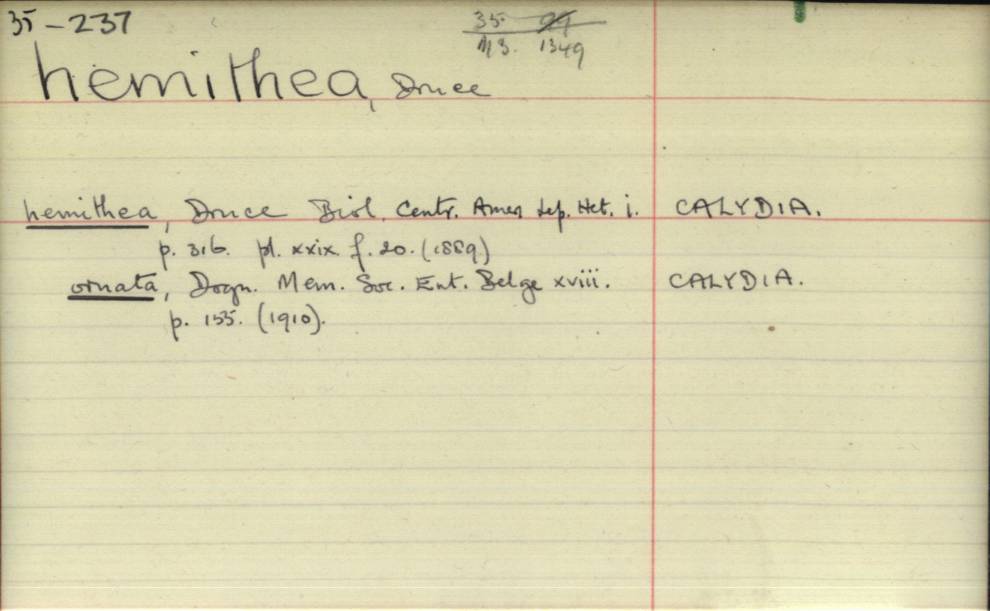 35-237
35
M3. 1349
hemithea, Druce
hemithea, Druce Biol. Centr. Amer. Lep. Het. i. CALYDIA.
p. 316. pl. xxix f. 20. (1889)
ornata, Dogn. Mem. Soc. Ent. Belge xviii. CALYDIA.
p. 155. (1910).